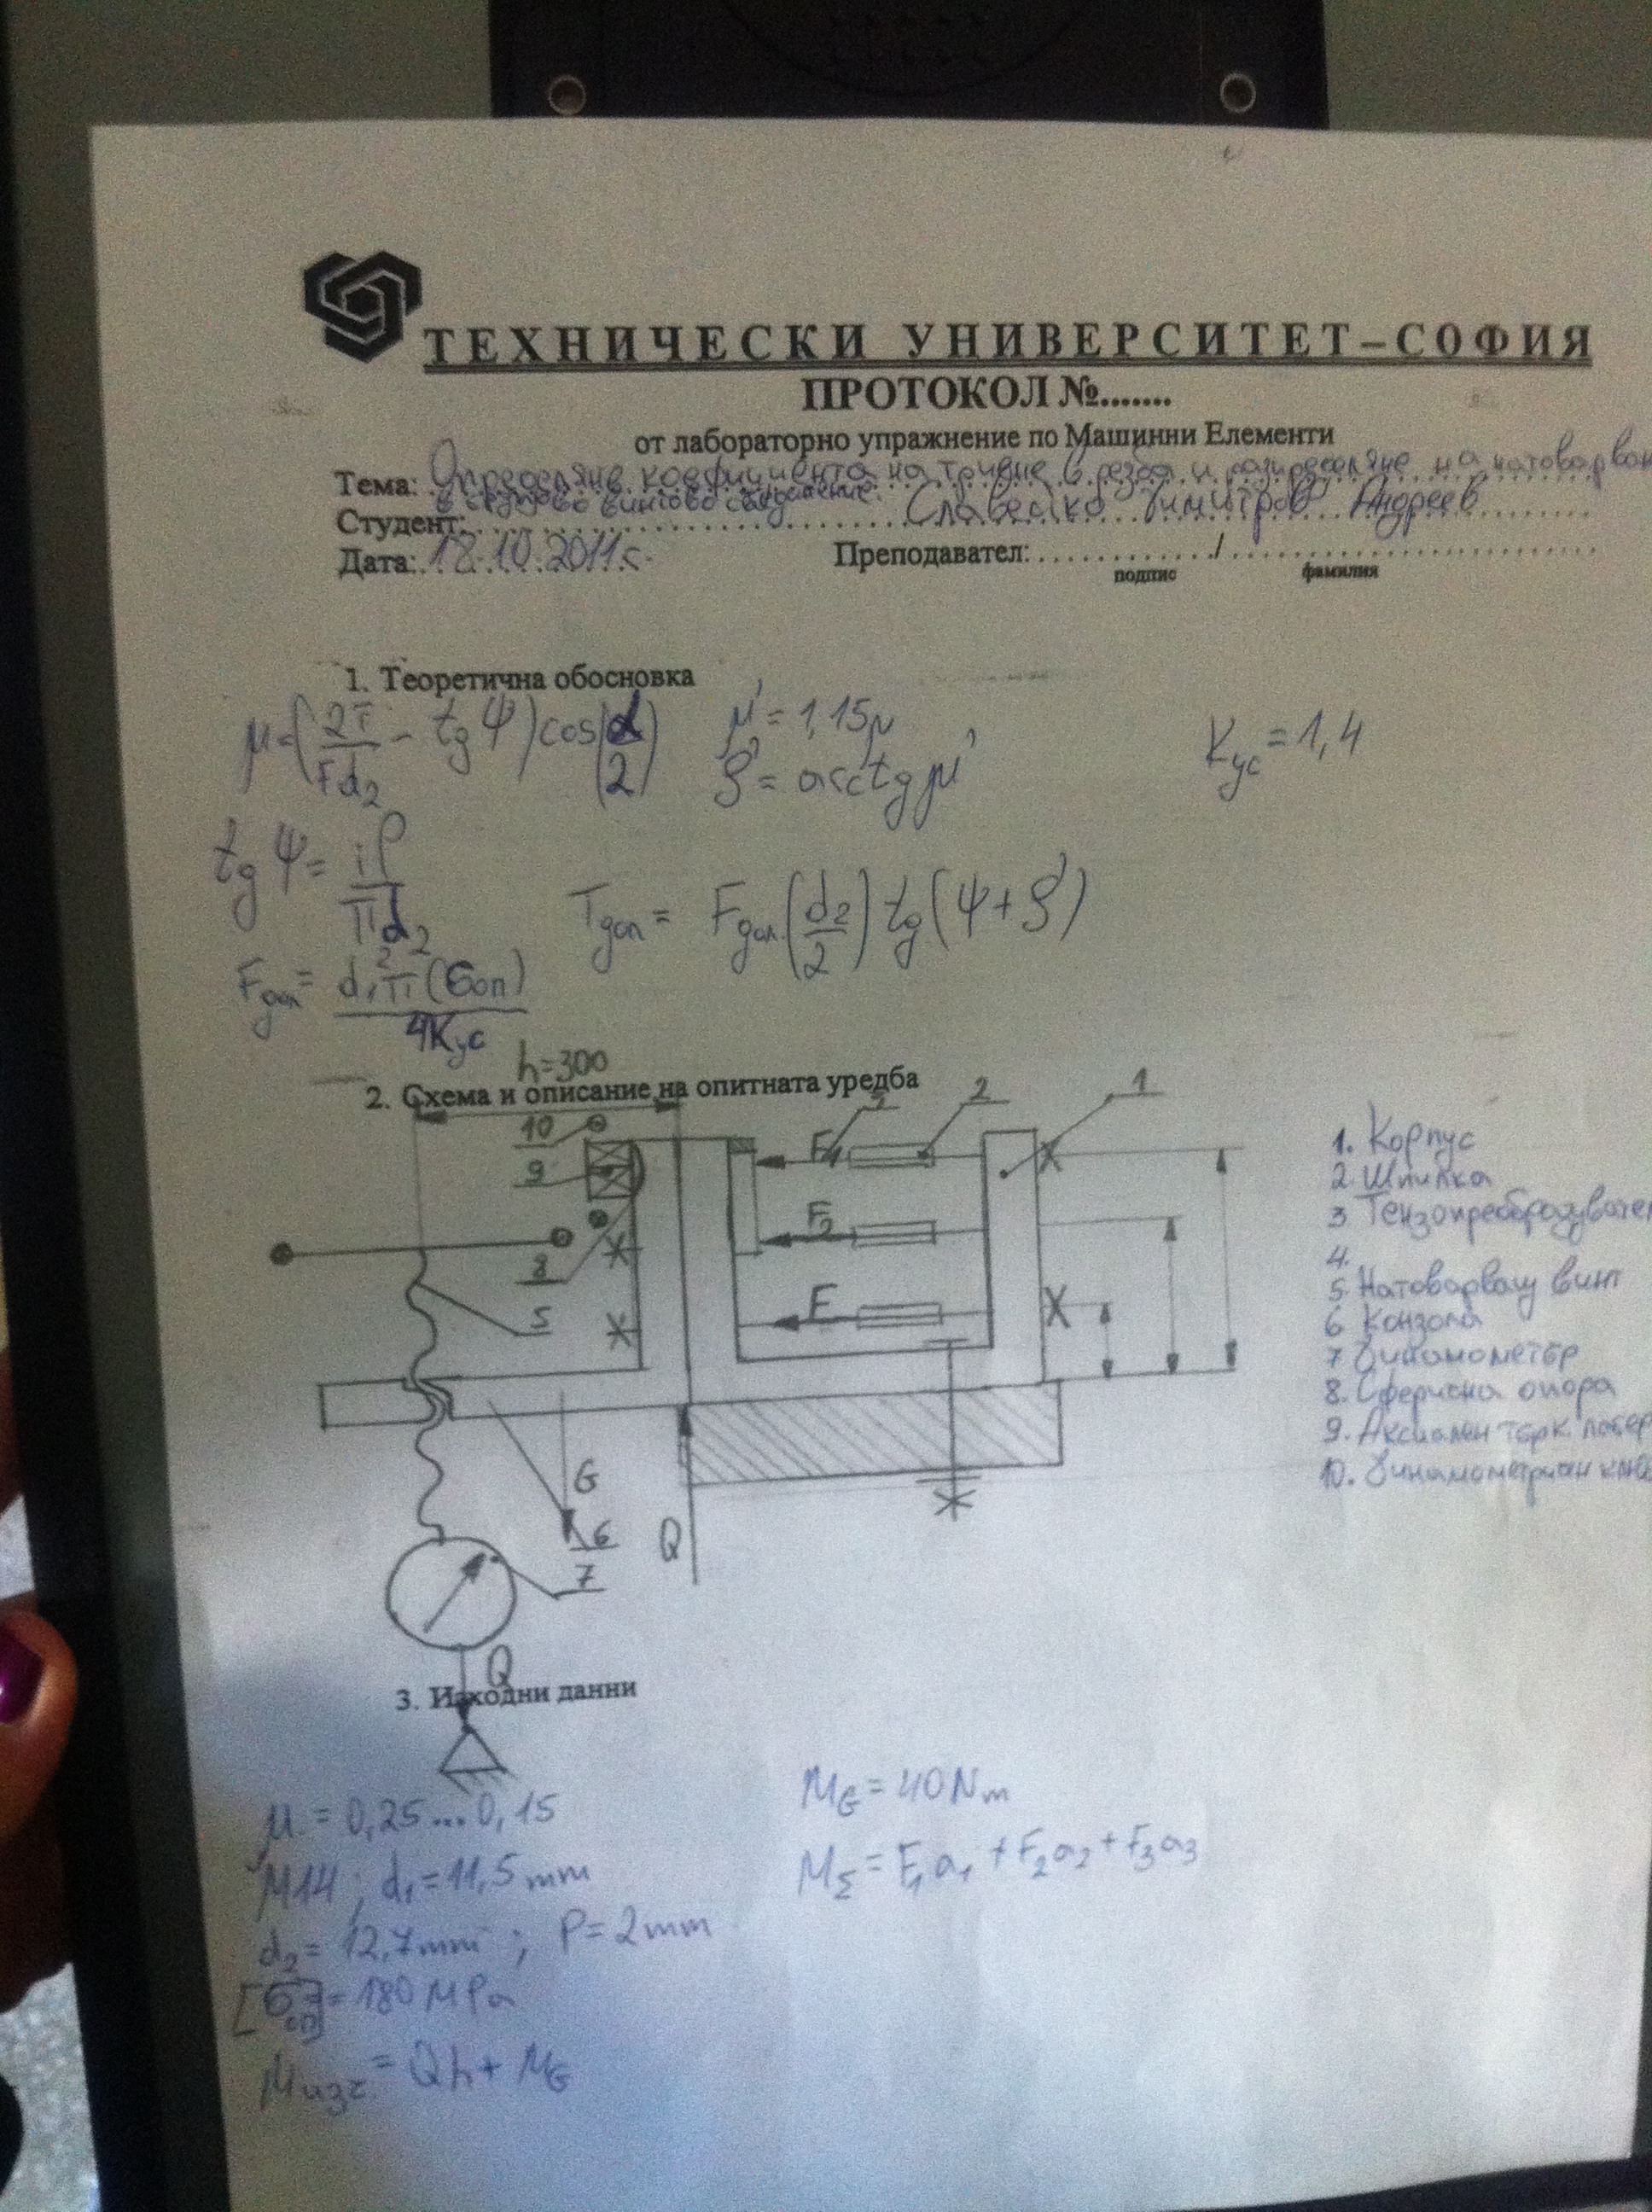 ТЕХНИЧЕСКИ УНИВЕРСИТЕТ–СОФИЯ
ПРОТОКОЛ №.......
от лабораторно упражнение по Машинни Елементи
Тема: Определяне коефициента на триене в резба и разпределяне на натоварван
в групово винтово съединение.
Студент: Славейко Димитров Андреев
Дата: 18.10.2011г.
Преподавател: ............/............
подпис фамилия
1. Теоретична обосновка
μ=(2T/Fd₂ - tgψ)cos(α/2) μ'=1,15μ Kус=1,4
ρ'=arctgμ'
tgψ=iP/πd₂
Tдоп= Fдоп.(d₂/2)tg(ψ+ρ')
Fдоп=d₁²π(σоп)/4Kус
h=300
2. Схема и описание на опитната уредба
10
9
8
5
G
6
7
Q
Q
3
2
1
F1
F2
F
1. Корпус
2. Шпилка
3 Тензопреобразувател
4.
5. Натоварващ винт
6 Конзола
7 Динамометър
8. Сферична опора
9. Аксиален търк. лагер
10. Динамометричен ключ
3. Изходни данни
μ = 0,25...0,15
M14; d₁=11,5mm
d₂= 12,7mm; P=2mm
[σоп]=180MPa
Mизч.= Qh+MG
MG=40Nm
MΣ=F₁a₁+F₂a₂+F₃a₃